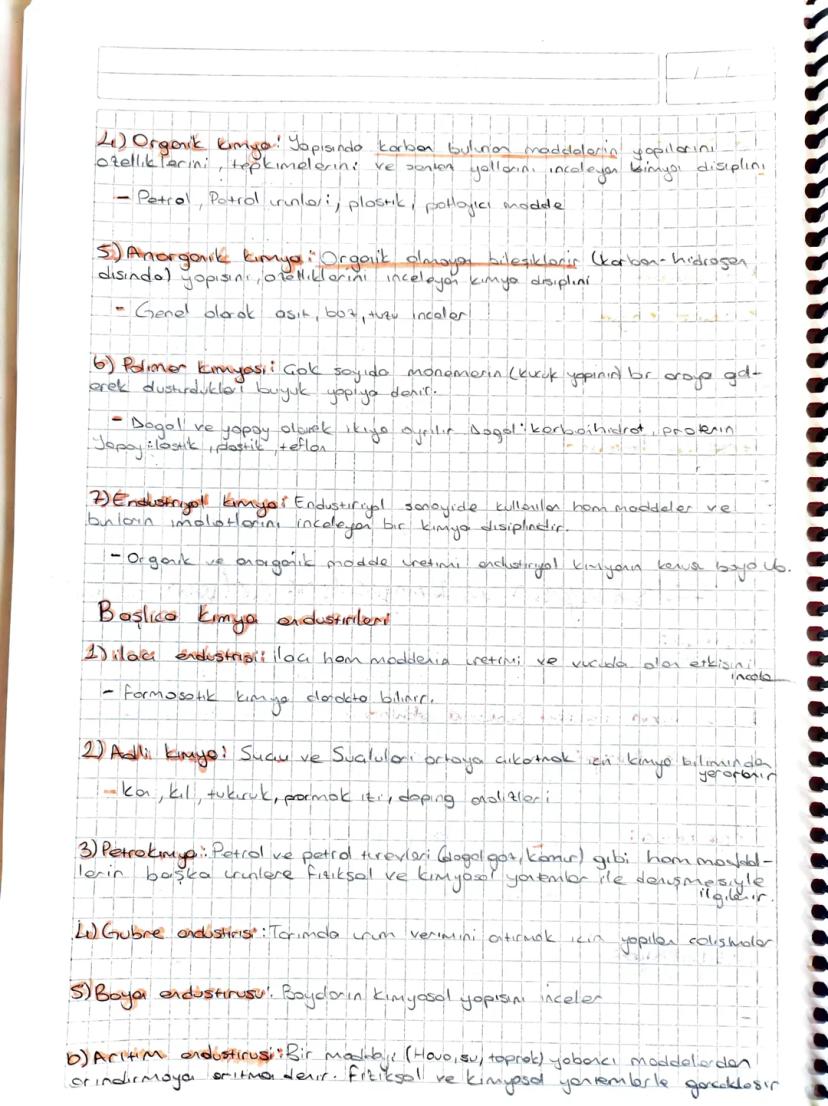 4) Organik kimya: Yapısında karbon bulunan maddelerin yapılarını
özelliklerini, tepkimelerini ve sentez yollarını inceleyen kimya disiplini
- Petrol, Petrol ürünleri, plastik, patlayıcı madde
5) Anorganik kimya: Organik olmayan bileşiklerin (karbon-hidrojen
dışında) yapısını, özelliklerini inceleyen kimya disiplini
- Genel olarak asit, baz, tuzu inceler
6) Polimer kimyası: Çok sayıda monomerin (küçük yapının) bir araya gel-
erek oluşturdukları büyük yapıya denir.
- Doğal ve yapay olarak ikiye ayrılır Doğal: karbonhidrat, protein
Yapay: lastik, plastik, teflon
7) Endüstriyel kimya: Endüstriyel sanayide kullanılan ham maddeler ve
bunların imalatlarını inceleyen bir kimya disiplindir.
- Organik ve anorganik madde üretimi endüstriyel kimyanın konusu boya vb.
Başlıca kimya endüstrileri
1) ilaç endüstrisi: ilaç ham maddenin üretimi ve vücuda olan etkisini
inceler
- farmasotik kimya olarakta bilinir.
2) Adli kimya: Suçu ve Suçluları ortaya çıkatmak için kimya biliminden
yararlanır
- kan, kıl, tükürük, parmak izi, doping analizleri
3) Petrokimya: Petrol ve petrol türevleri (doğalgaz, kömür) gibi ham madd-
lerin başka ürünlere fiziksel ve kimyasal yöntemler ile dönüşmesiyle
ilgilenir.
4) Gübre endüstirisi: Tarımda ürün verimini artırmak için yapılan çalışmalar
5) Boya endüstürüsü: Boyaların kimyasal yapısını inceler
6) Arıtım endüstürüsi: Bir maddeyi (Hava, su, toprak) yabancı maddelerden
arındırmaya arıtma denir. fiziksel ve kimyasal yöntemlerle gerçekleşir